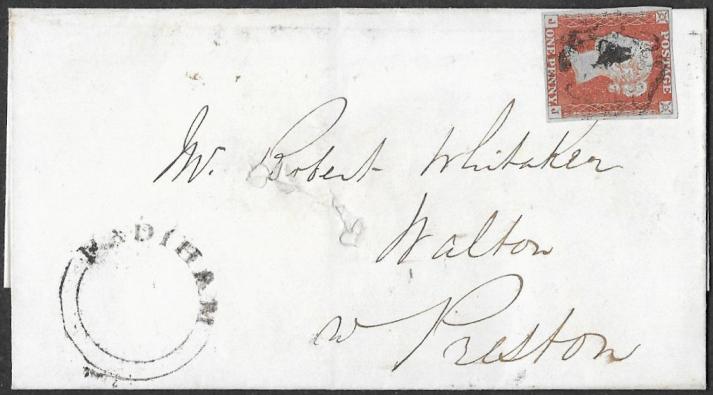 POSTAGE
ONE PENNY
J J
Mr. Robert Whitaker
Walton
nr Preston
PADIHAM